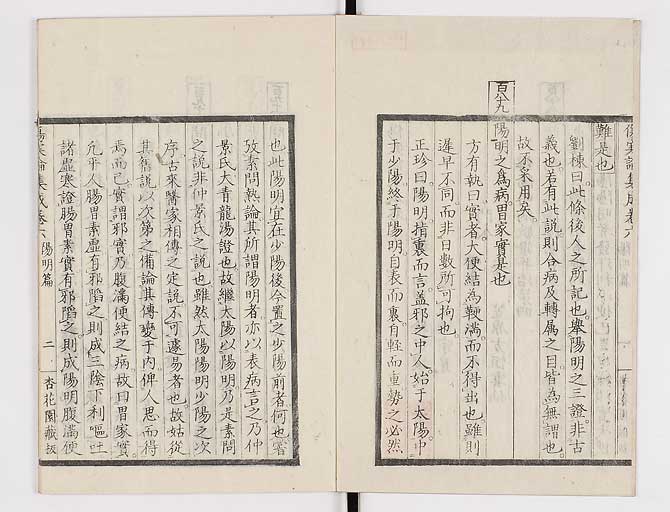 傷寒論集成卷六 陽明篇 一
難是也
劉棟曰此條後人之所記也擧陽明之三證非古
義也若有此說則合病及轉属之目皆為無謂也
故不采用矣
百八九
陽明之為病胃家實是也
方有執曰實者大便結為鞕滿而不得出也雖則
遲早不同而非日數所可拘也
正珍曰陽明指裏而言盖邪之中人始于太陽中
于少陽終于陽明自表而裏自輕而重勢之必然
也此陽明宜在少陽後今置之少陽前者何也蓋
攷素問熱論其所謂陽明者亦以表病言之乃仲
景氏大青龍湯證也故繼太陽以陽明乃是素問
之說非仲景氏之說也雖然太陽陽明少陽之次
序古來醫家相傳之定說不可遽易者也故姑從
其舊說以次第之備論其傳變于內俾人思而得
焉而已實謂邪實乃腹滿便結之病故曰胃家實
凢平人腸胃素虛有邪䧟之則成三陰下利嘔吐
諸虛寒證腸胃素實有邪䧟之則成陽明腹滿便
傷寒論集成卷六 陽明篇 二 杏花園藏板